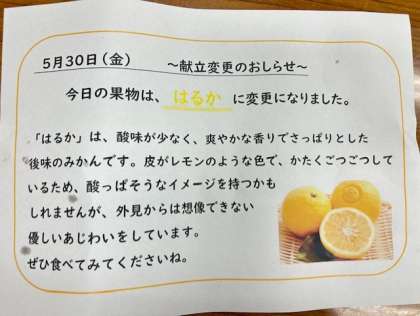 5月30日(金)　～献立変更のおしらせ～
今日の果物は、はるか に変更になりました。
「はるか」は、酸味が少なく、爽やかな香りでさっぱりとした
後味のみかんです。皮がレモンのような色で、かたくごつごつして
いるため、酸っぱそうなイメージを持つかも
しれませんが、外見からは想像できない
優しいあじわいをしています。
ぜひ食べてみてくださいね。